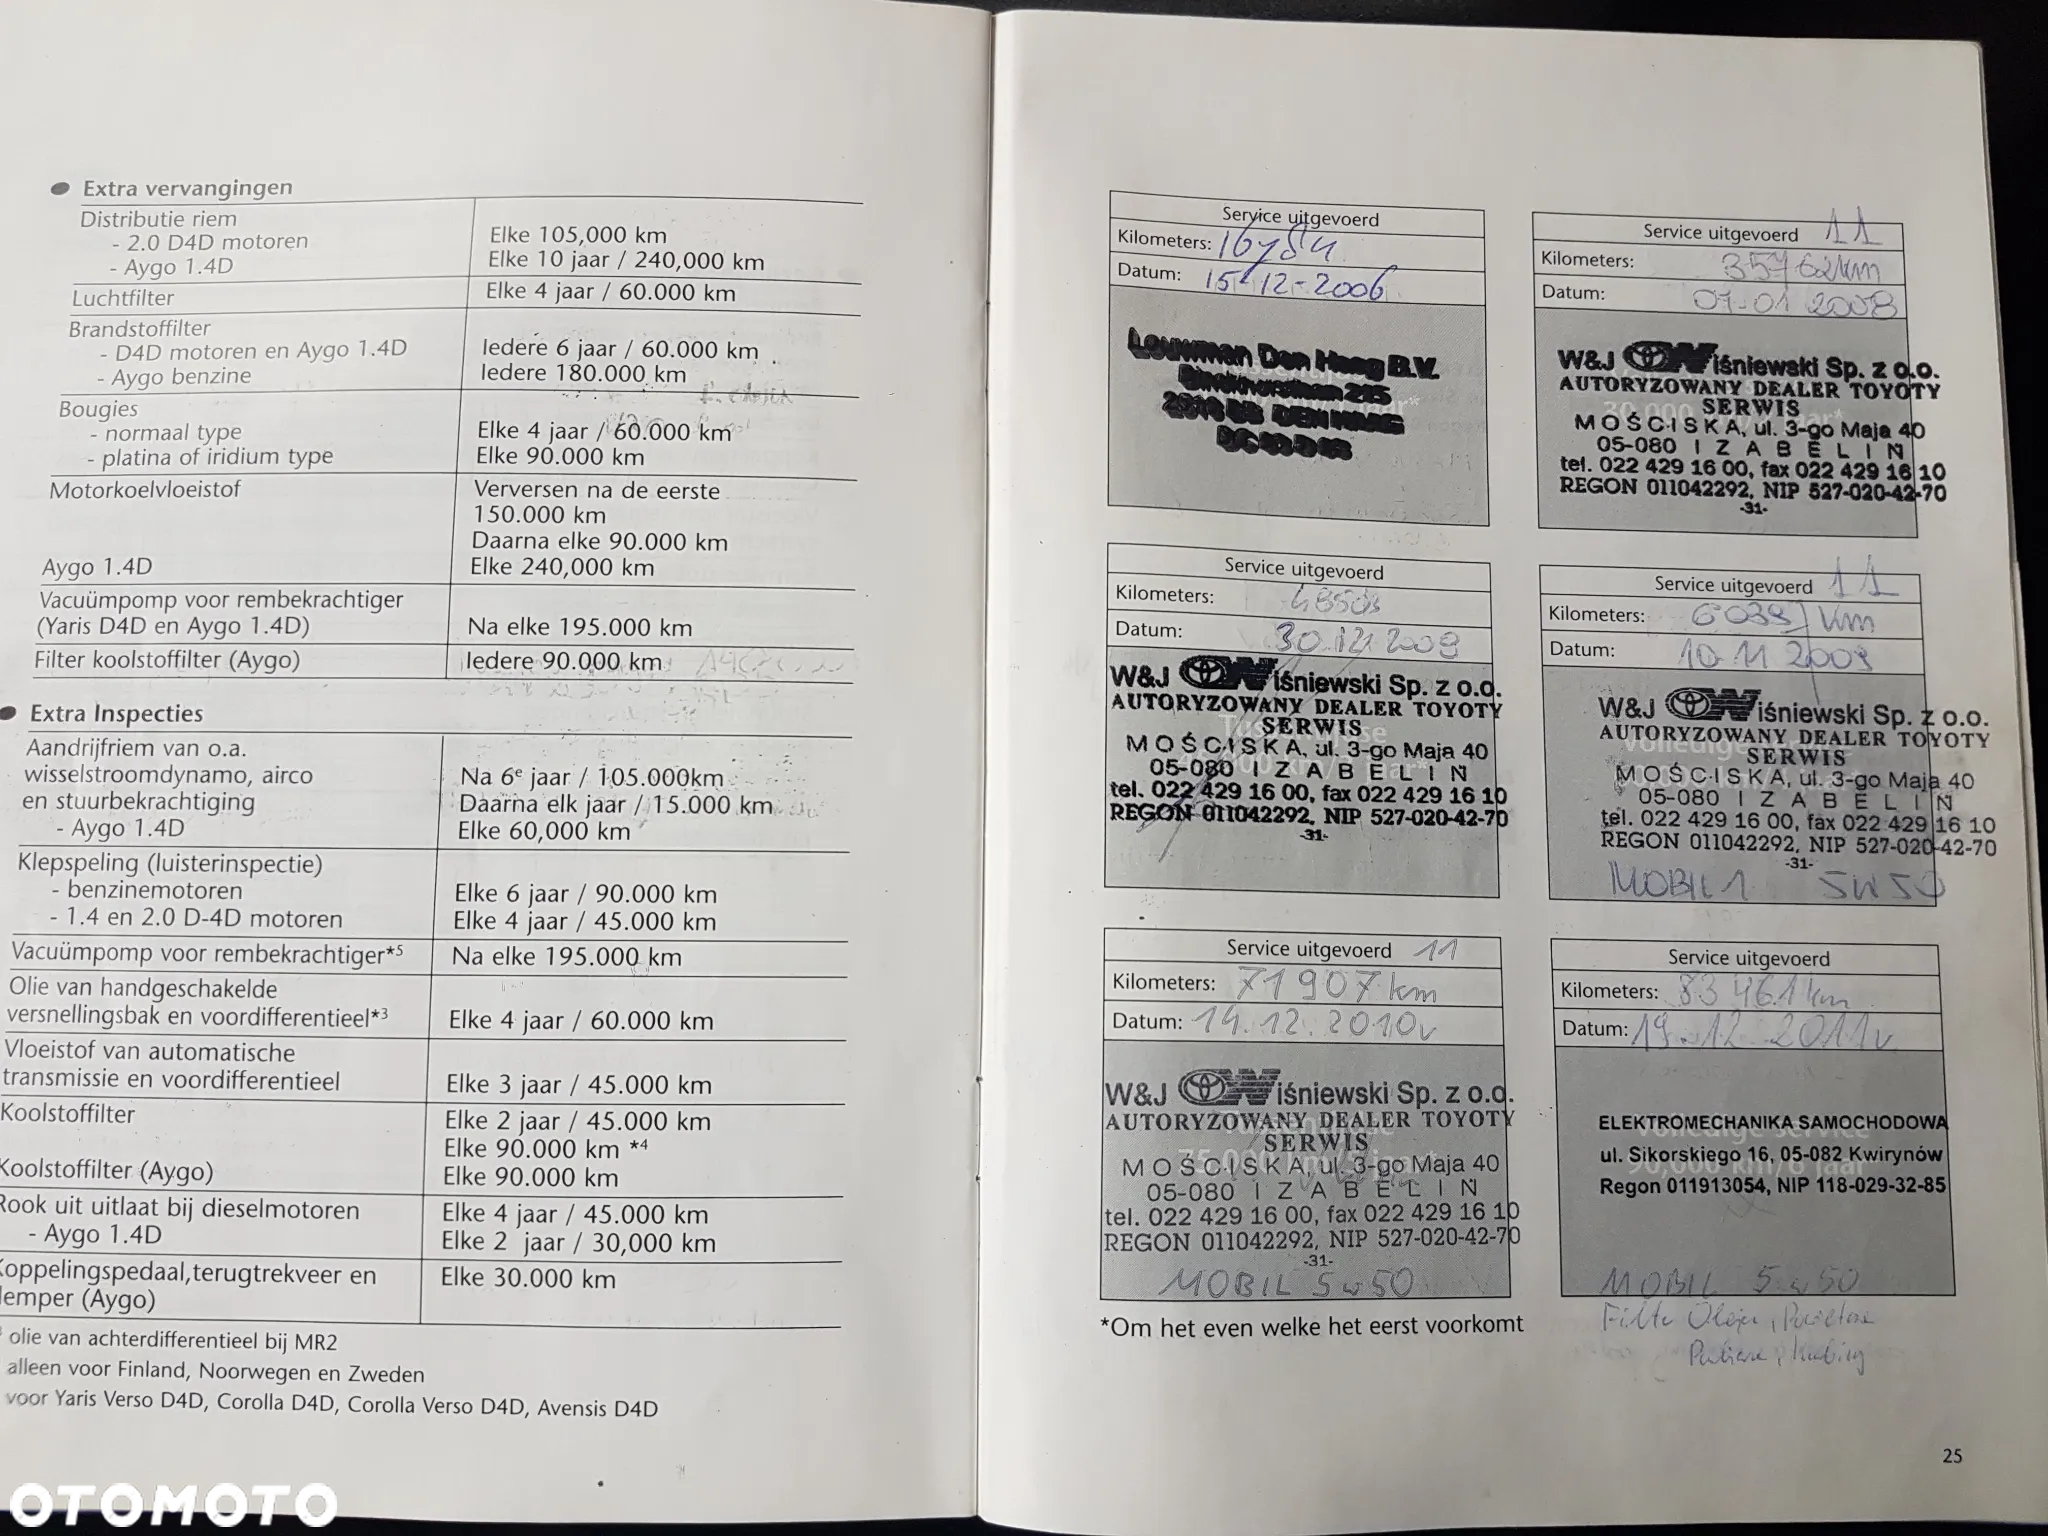 Extra vervangingen
Distributie riem
- 2.0 D4D motoren Elke 105,000 km
- Aygo 1.4D Elke 10 jaar / 240,000 km
Luchtfilter Elke 4 jaar / 60.000 km
Brandstoffilter
- D4D motoren en Aygo 1.4D Iedere 6 jaar / 60.000 km
- Aygo benzine Iedere 180.000 km
Bougies
- normaal type Elke 4 jaar / 60.000 km
- platina of iridium type Elke 90.000 km
Motorkoelvloeistof Verversen na de eerste
150.000 km
Daarna elke 90.000 km
Aygo 1.4D Elke 240,000 km
Vacuümpomp voor rembekrachtiger
(Yaris D4D en Aygo 1.4D) Na elke 195.000 km
Filter koolstoffilter (Aygo) Iedere 90.000 km
Extra Inspecties
Aandrijfriem van o.a.
wisselstroomdynamo, airco Na 6e jaar / 105.000km
en stuurbekrachtiging Daarna elk jaar / 15.000 km
- Aygo 1.4D Elke 60,000 km
Klepspeling (luisterinspectie)
- benzinemotoren Elke 6 jaar / 90.000 km
- 1.4 en 2.0 D-4D motoren Elke 4 jaar / 45.000 km
Vacuümpomp voor rembekrachtiger*5 Na elke 195.000 km
Olie van handgeschakelde
versnellingsbak en voordifferentieel*3 Elke 4 jaar / 60.000 km
Vloeistof van automatische
transmissie en voordifferentieel Elke 3 jaar / 45.000 km
Koolstoffilter Elke 2 jaar / 45.000 km
Elke 90.000 km *4
Koolstoffilter (Aygo) Elke 90.000 km
Rook uit uitlaat bij dieselmotoren Elke 4 jaar / 45.000 km
- Aygo 1.4D Elke 2 jaar / 30,000 km
Koppelingspedaal,terugtrekveer en Elke 30.000 km
demper (Aygo)
olie van achterdifferentieel bij MR2
alleen voor Finland, Noorwegen en Zweden
voor Yaris Verso D4D, Corolla D4D, Corolla Verso D4D, Avensis D4D
Service uitgevoerd
Kilometers:
Datum: 15-12-2006
Louwman Den Haag B.V.
Service uitgevoerd 11
Kilometers: 35762km
Datum: 07-01 2008
W&J Wiśniewski Sp. z o.o.
AUTORYZOWANY DEALER TOYOTY
SERWIS
MOŚCISKA, ul. 3-go Maja 40
05-080 IZABELIN
tel. 022 429 16 00, fax 022 429 16 10
REGON 011042292, NIP 527-020-42-70
-31-
Service uitgevoerd
Kilometers:
Datum: 30.12.2009
W&J Wiśniewski Sp. z o.o.
AUTORYZOWANY DEALER TOYOTY
SERWIS
MOŚCISKA, ul. 3-go Maja 40
05-080 IZABELIN
tel. 022 429 16 00, fax 022 429 16 10
REGON 011042292, NIP 527-020-42-70
-31-
Service uitgevoerd 11
Kilometers: 60397 km
Datum: 10 11 2009
W&J Wiśniewski Sp. z o.o.
AUTORYZOWANY DEALER TOYOTY
SERWIS
MOŚCISKA, ul. 3-go Maja 40
05-080 IZABELIN
tel. 022 429 16 00, fax 022 429 16 10
REGON 011042292, NIP 527-020-42-70
-31-
MOBIL 1 5W50
Service uitgevoerd 11
Kilometers: 71907km
Datum: 14.12.2010r
W&J Wiśniewski Sp. z o.o.
AUTORYZOWANY DEALER TOYOTY
SERWIS
MOŚCISKA, ul. 3-go Maja 40
05-080 IZABELIN
tel. 022 429 16 00, fax 022 429 16 10
REGON 011042292, NIP 527-020-42-70
-31-
MOBIL 5w50
Service uitgevoerd
Kilometers: 83461km
Datum: 19.12.2011r
ELEKTROMECHANIKA SAMOCHODOWA
ul. Sikorskiego 16, 05-082 Kwirynów
Regon 011913054, NIP 118-029-32-85
MOBIL 5w50
*Om het even welke het eerst voorkomt
25
OTOMOTO